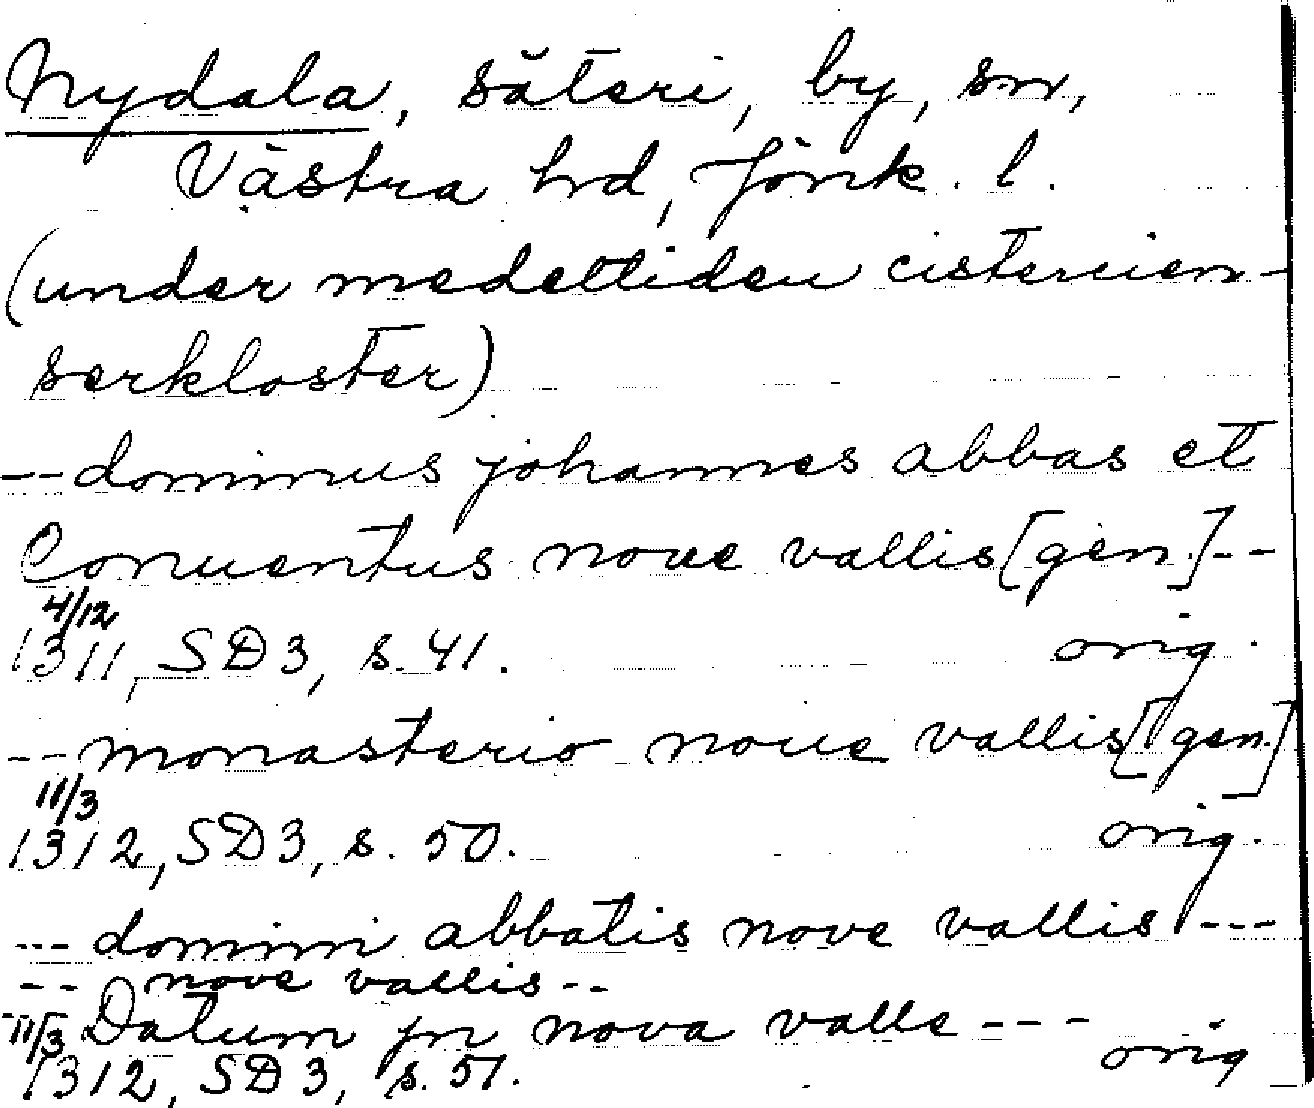 Nydala, säteri, by, sn,
Västra hrd, Jönk. l.
(under medeltiden cistercien-
serkloster)
-- dominus johannes abbas et
Conuentus noue vallis [gen.] --
4/12
1311, SD3, s. 41. orig.
-- monasterio noue vallis [gen.]
11/3
1312, SD3, s. 50. orig.
--- domini abbatis nove vallis ---
-- nove vallis --
-- Datum jn nova valle ---
11/3
1312, SD3, s. 51. orig